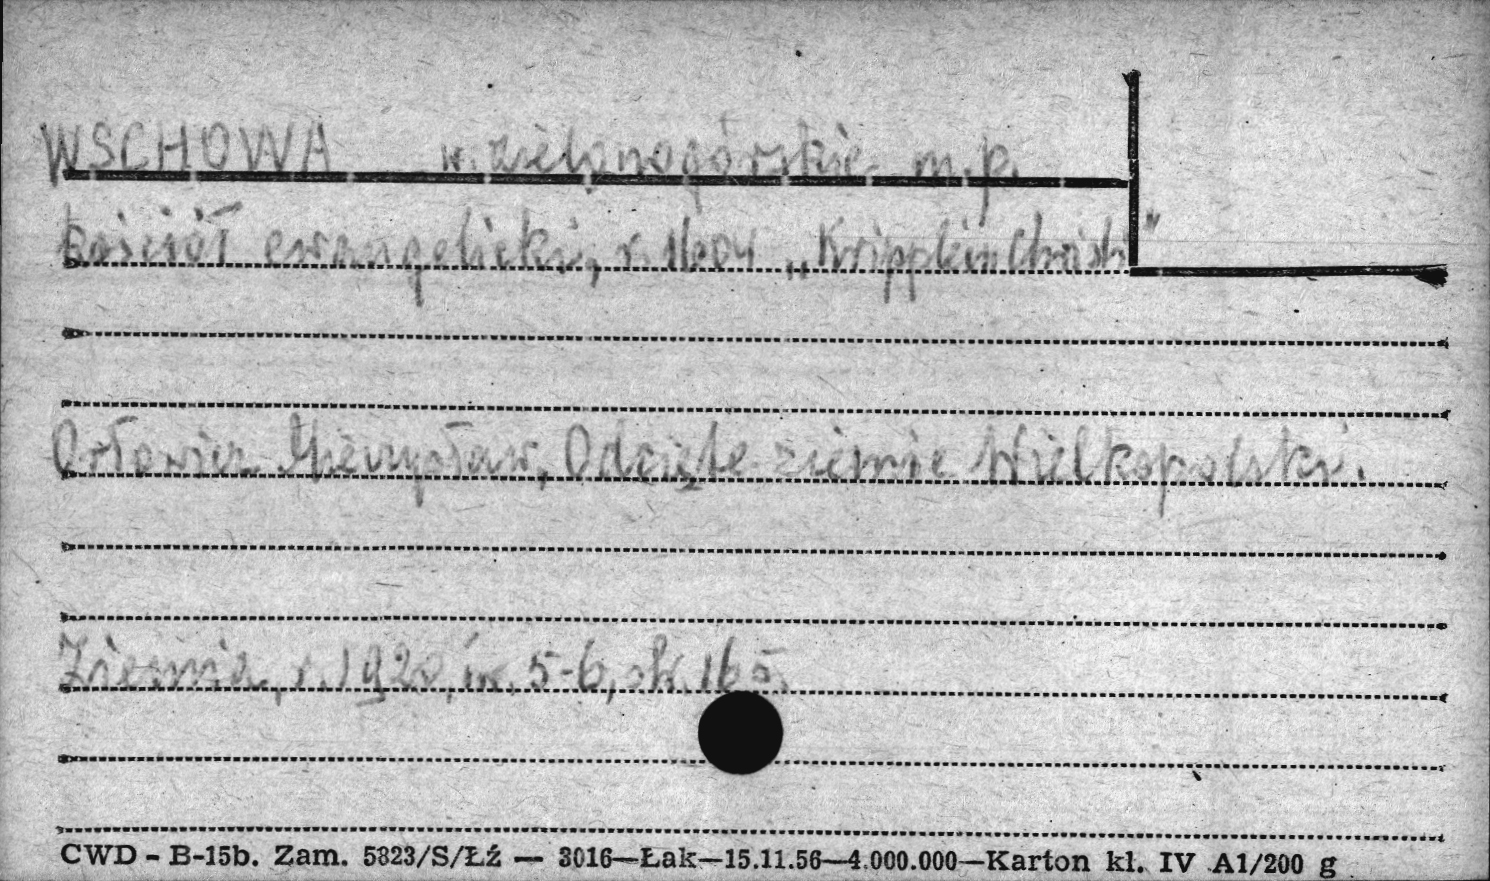 WSCHOWA w. zielonogórskie m.p.
kościół ewangelicki, r. 1604 „Kripplein Christi"
Orłowicz Mieczysław, Odcięte ziemie Wielkopolski.
Ziemia, r. 1920, nr. 5-6, str. 165.
CWD - B-15b. Zam. 5823/S/Łź — 3016—Łak—15.11.56—4.000.000—Karton kl. IV A1/200 g